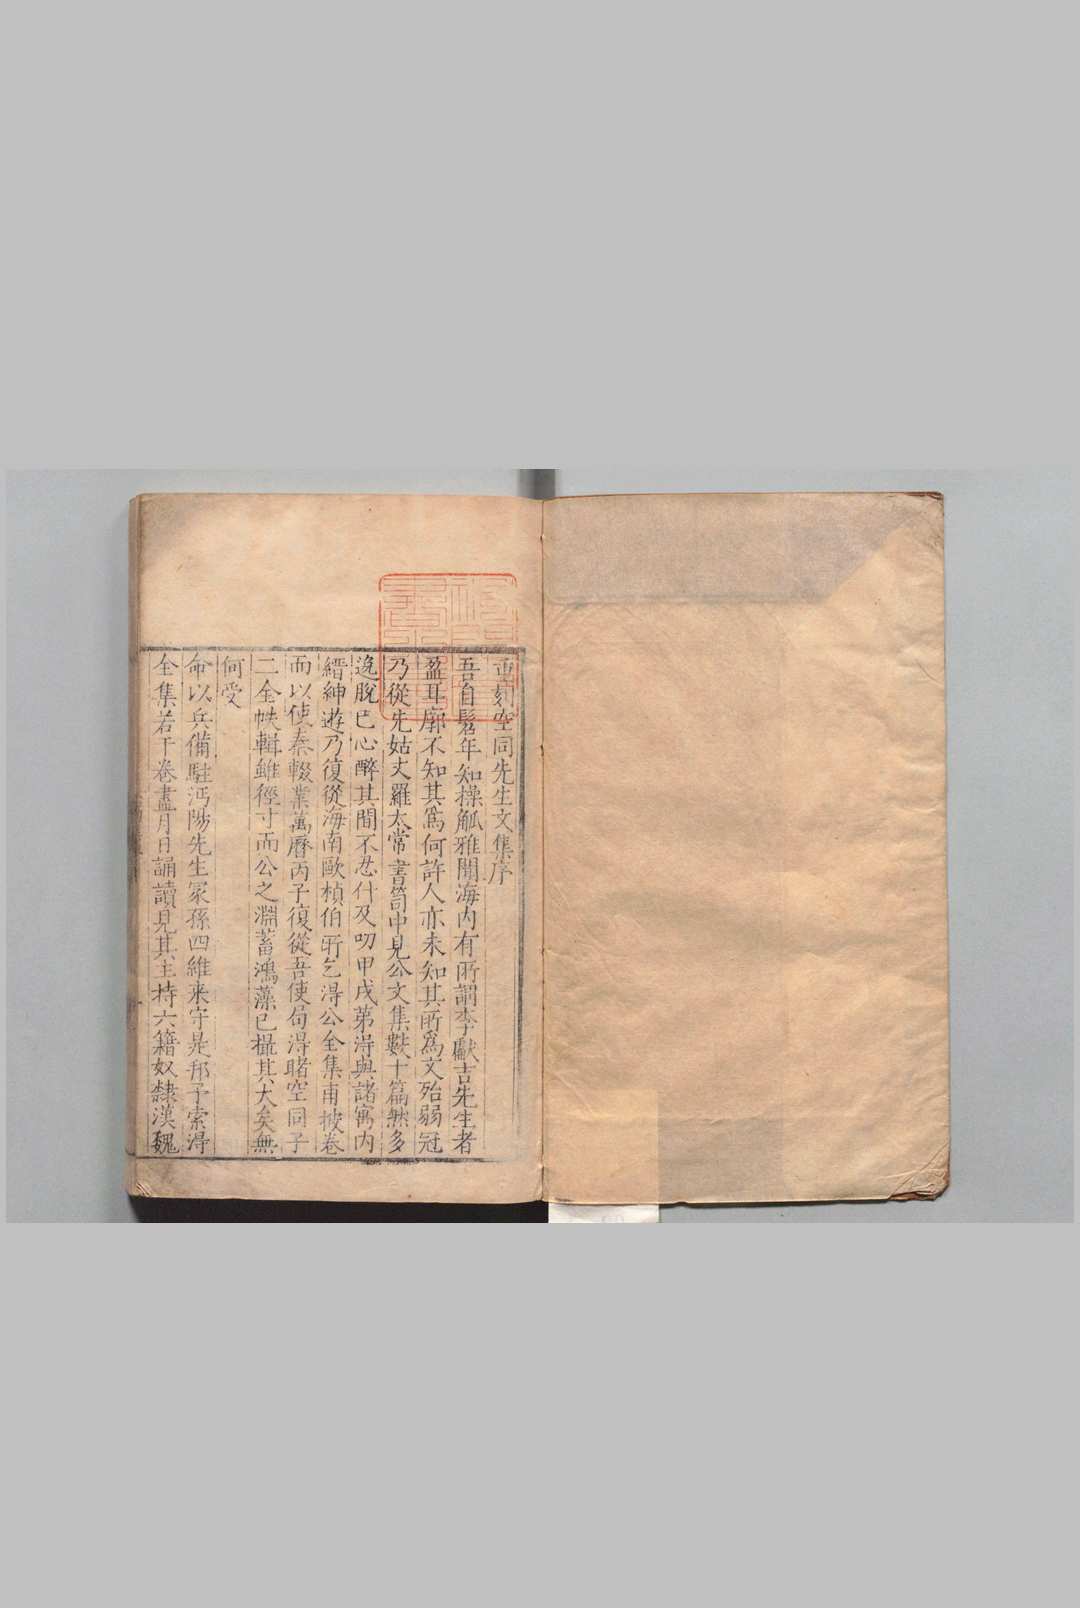 重刻空同先生文集序
吾自髫年知操觚雅聞海内有所謂李獻吉先生者
盈耳廓不知其爲何許人亦未知其所爲文殆弱冠
乃從先姑丈羅太常書笥中見公文集數十篇然多
逸脫已心醉其間不忍什及叨甲戌第得與諸寓内
縉紳遊乃復從海南歐楨伯所乞得公全集甫披卷
而以使秦輟業萬曆丙子復從吾使局得睹空同子
二全帙輯雖徑寸而公之淵蓄鴻藻已撮其大矣無
何受
命以兵備駐沔陽先生冢孫四維来守是邦予索得
全集若干卷盡月日誦讀見其主持六籍奴隸漢魏